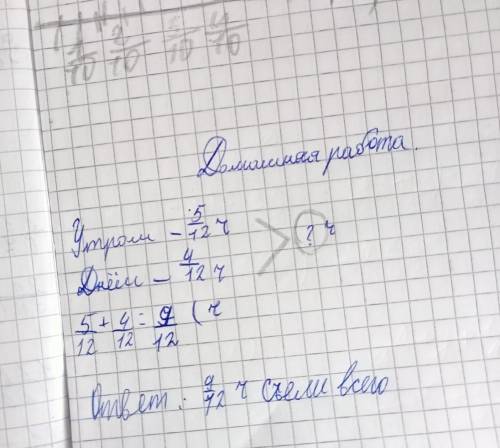 1/10 2/10 3/10 4/10
Домашняя работа.
Утром – 5/12 ч
? ч
Днём – 4/12 ч
5/12 + 4/12 = 9/12 ( ч
Ответ: 9/12 ч съели всего